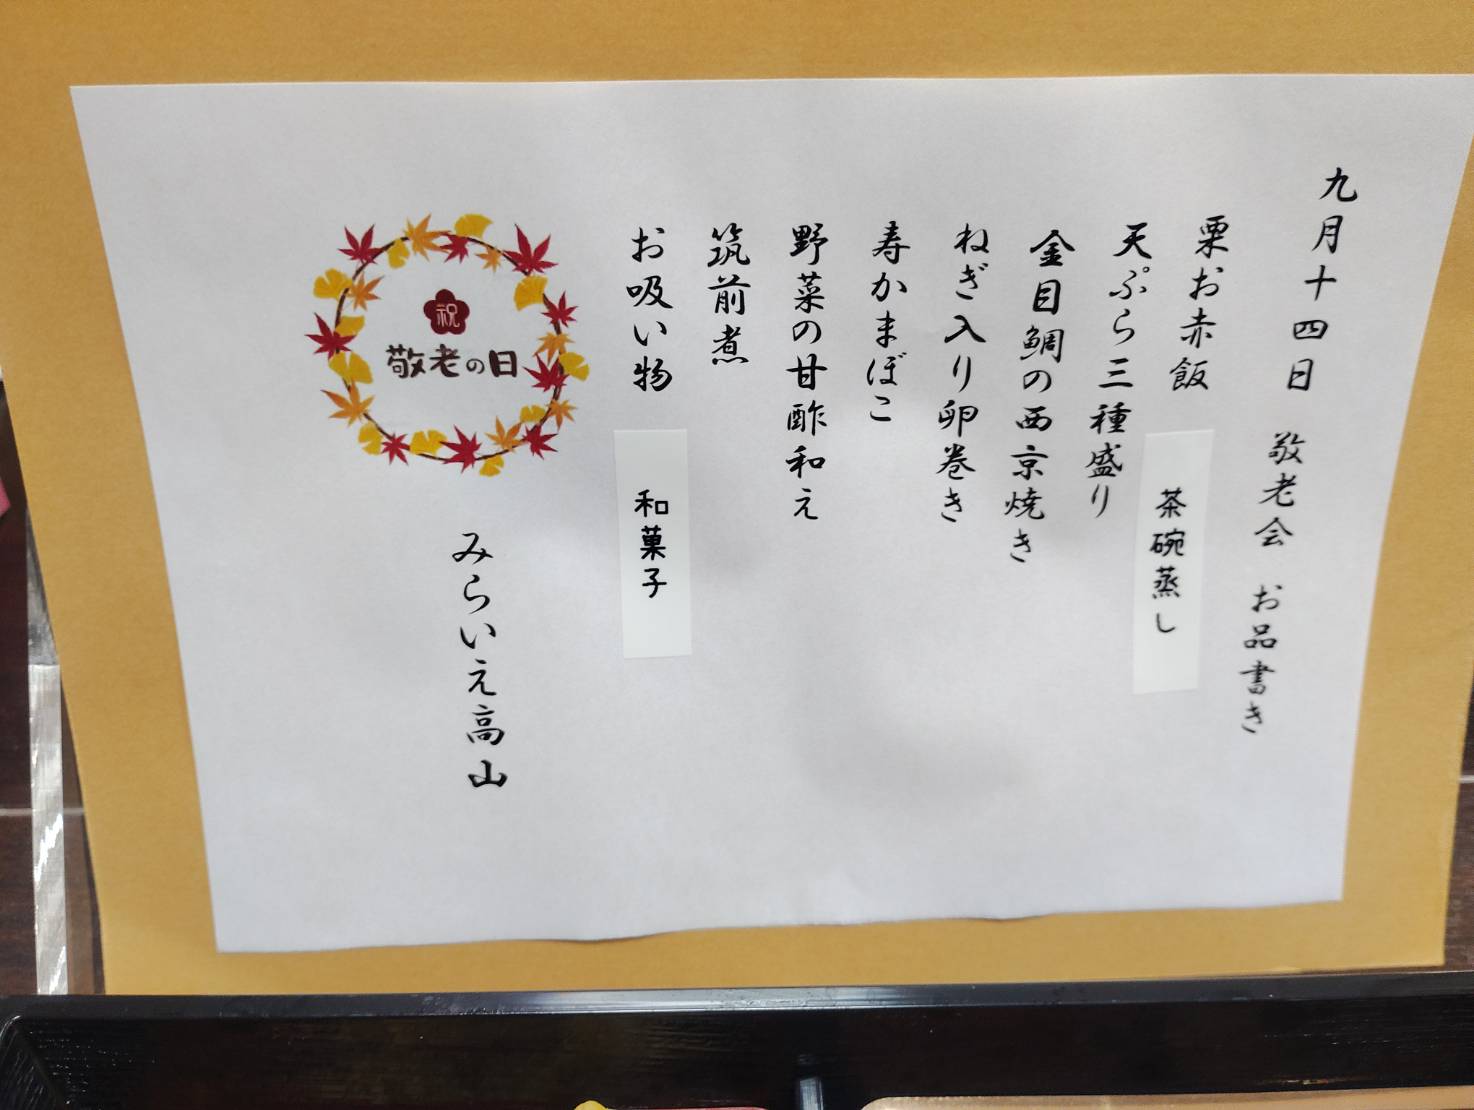 九月十四日　敬老会　お品書き
栗お赤飯　茶碗蒸し
天ぷら三種盛り
金目鯛の西京焼き
ねぎ入り卵巻き
寿かまぼこ
野菜の甘酢和え
筑前煮
お吸い物　和菓子
祝
敬老の日
みらいえ高山